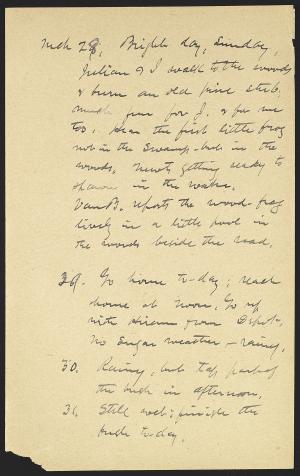 Mch 28, Bright day, Sunday,
Julian & I walk to the woods
& burn an old pine stub.
Much fun for J. & for me
too. Hear the first little frog
not in the swamp - but in the
woods. Newts getting ready to
spawn in the water.
Van B. reports the wood-frog
lively in a little pool in
the woods beside the road.
29. Go home to-day; reach
home at noon. Go up
with Hiram from Depot.
No sugar weather - rainy.
30. Rainy, but tap part of
the bush in afternoon.
31. Still wet; finish the
bush to-day.